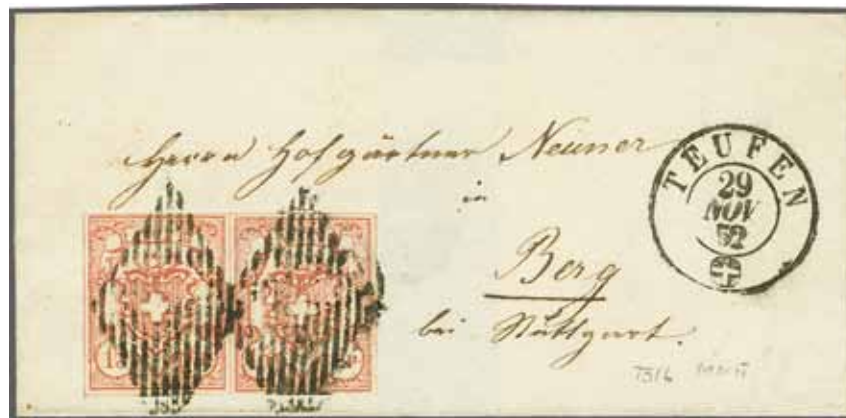 Herrn Hofgärtner Neuner
in
Berg
bei Stuttgart.
TEUFEN
29
NOV
52